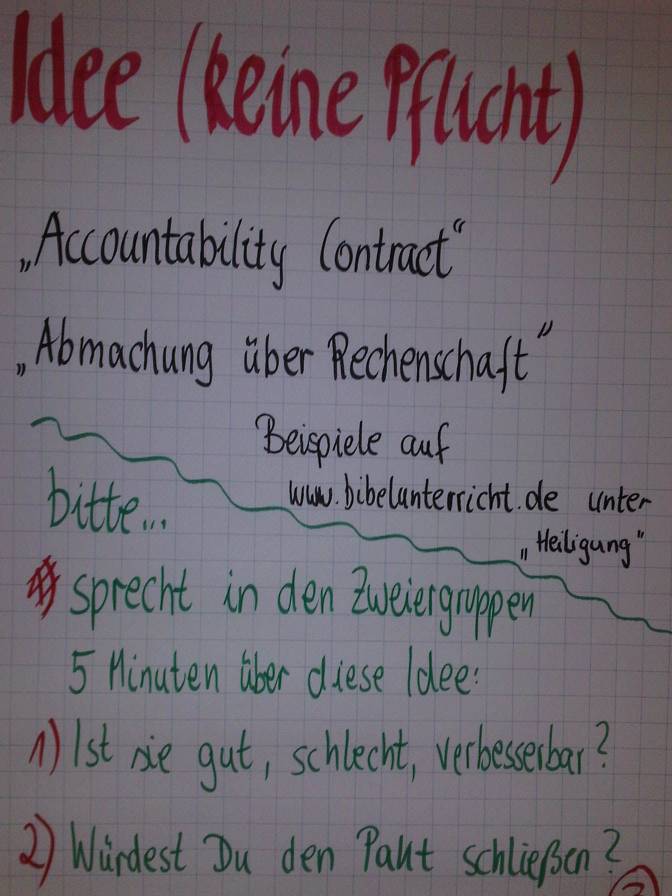 Idee (keine Pflicht)
„Accountability Contract“
„Abmachung über Rechenschaft“
Beispiele auf
www.bibelunterricht.de unter
„Heiligung“
bitte...
sprecht in den Zweiergruppen
5 Minuten über diese Idee:
1) Ist sie gut, schlecht, verbesserbar?
2) Würdest Du den Pakt schließen?